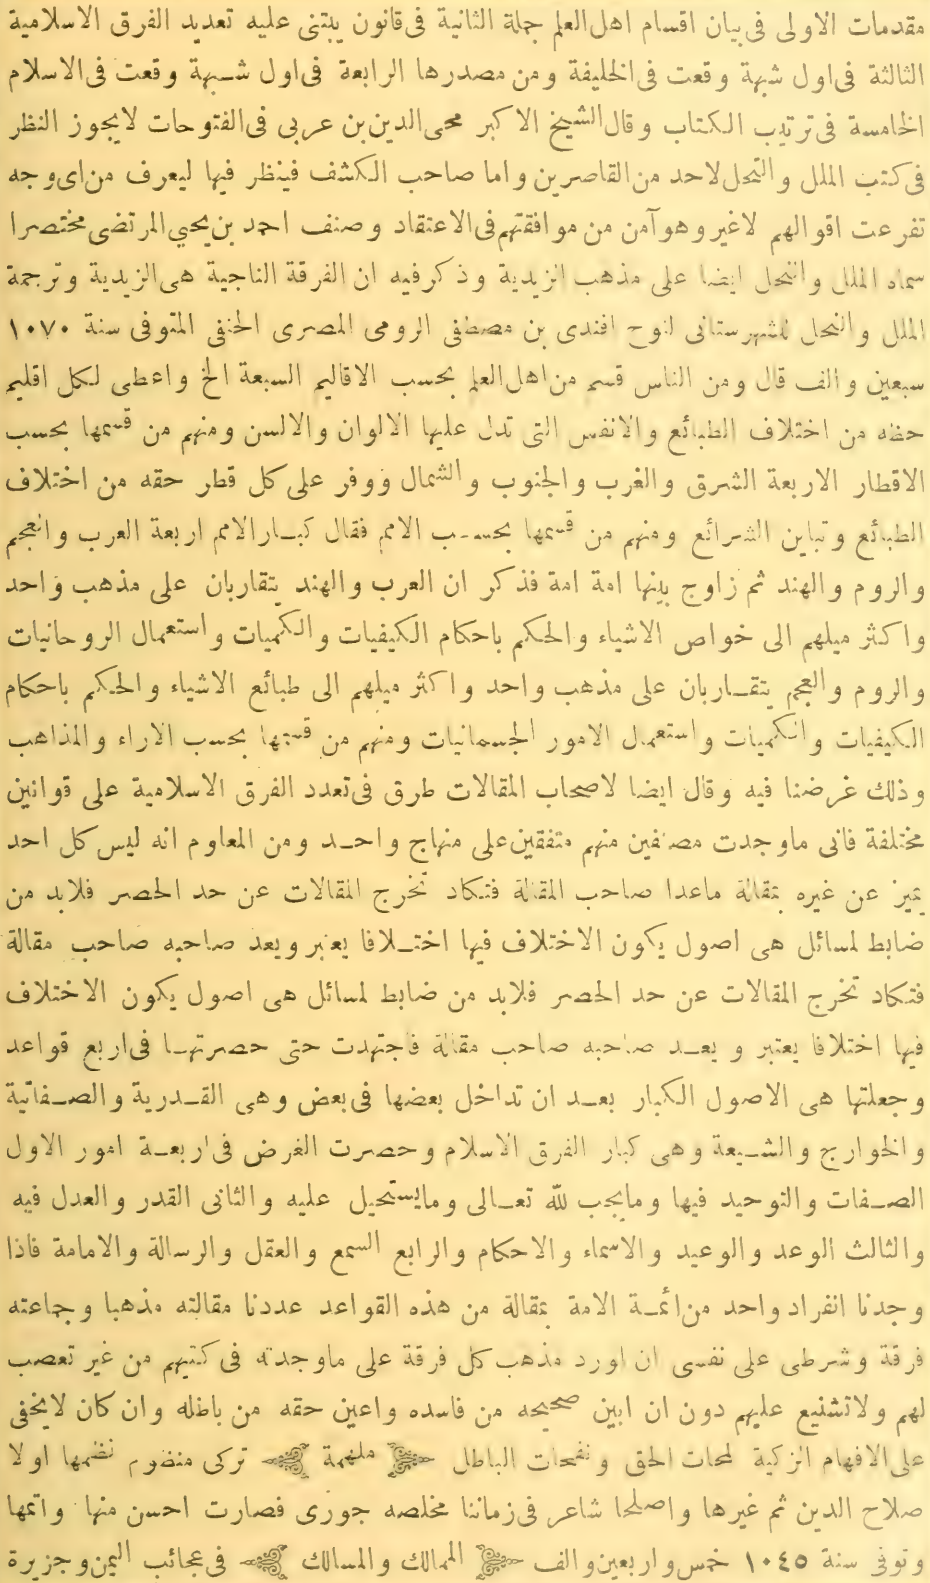 مقدمات الاولى فى بيان اقسام اهل العلم جملة الثانية فى قانون يبتنى عليه تعديد الفرق الاسلامية
الثالثة فى اول شبهة وقعت فى الخليفة ومن مصدرها الرابعة فى اول شبهة وقعت فى الاسلام
الخامسة فى ترتيب الكتاب وقال الشيخ الاكبر محى الدين بن عربى فى الفتوحات لا يجوز النظر
فى كتب الملل والنحل لاحد من القاصرين واما صاحب الكشف فينظر فيها ليعرف من اى وجه
تفرعت اقوالهم لاغير وهو آمن من موافقتهم فى الاعتقاد وصنف احمد بن يحيى المرتضى مختصرا
سماه الملل والنحل ايضا على مذهب الزيدية وذكر فيه ان الفرقة الناجية هى الزيدية وترجمة
الملل والنحل للشهرستانى لنوح افندى بن مصطفى الرومى المصرى الحنفى المتوفى سنة ١٠٧٠
سبعين والف قال ومن الناس قسم من اهل العلم بحسب الاقاليم السبعة الخ واعطى لكل اقليم
حظه من اختلاف الطبائع والانفس التى تدل عليها الالوان والالسن ومنهم من قسمها بحسب
الاقطار الاربعة الشرق والغرب والجنوب والشمال ووفر على كل قطر حقه من اختلاف
الطبائع وتباين الشرائع ومنهم من قسمها بحسب الامم فقال كبار الامم اربعة العرب والعجم
والروم والهند ثم زاوج بينها امة امة فذكر ان العرب والهند يتقاربان على مذهب واحد
واكثر ميلهم الى خواص الاشياء والحكم باحكام الكيفيات والكميات واستعمال الروحانيات
والروم والعجم يتقاربان على مذهب واحد واكثر ميلهم الى طبائع الاشياء والحكم باحكام
الكيفيات والكميات واستعمال الامور الجسمانيات ومنهم من قسمها بحسب الاراء والمذاهب
وذلك غرضنا فيه وقال ايضا لاصحاب المقالات طرق فى تعدد الفرق الاسلامية على قوانين
مختلفة فانى ماوجدت مصنفين منهم متفقين على منهاج واحد ومن المعلوم انه ليس كل احد
تميز عن غيره بمقالة ماعدا صاحب المقالة فتكاد تخرج المقالات عن حد الحصر فلابد من
ضابط لمسائل هى اصول يكون الاختلاف فيها اختلافا يعتبر ويعد صاحبه صاحب مقالة
فتكاد تخرج المقالات عن حد الحصر فلابد من ضابط لمسائل هى اصول يكون الاختلاف
فيها اختلافا يعتبر و يعد صاحبه صاحب مقالة فاجتهدت حتى حصرتها فى اربع قواعد
وجعلتها هى الاصول الكبار بعد ان تداخل بعضها فى بعض وهى القدرية والصفاتية
والخوارج والشيعة وهى كبار الفرق الاسلام وحصرت الغرض فى اربعة امور الاول
الصفات والتوحيد فيها ومايجب لله تعالى ومايستحيل عليه والثانى القدر والعدل فيه
والثالث الوعد والوعيد والاسماء والاحكام والرابع السمع والعقل والرسالة والامامة فاذا
وجدنا انفراد واحد من ائمة الامة بمقالة من هذه القواعد عددنا مقالته مذهبا وجماعته
فرقة وشرطى على نفسى ان اورد مذهب كل فرقة على ماوجدته فى كتبهم من غير تعصب
لهم ولاتشنيع عليهم دون ان ابين صحيحه من فاسده واعين حقه من باطله وان كان لايخفى
على الافهام الزكية لمحات الحق ونفحات الباطل ملهمة تركى منظوم نظمها اولا
صلاح الدين ثم غيرها واصلحا شاعر فى زماننا مخلصه جورى فصارت احسن منها واتمها
وتوفى سنة ١٠٤٥ خمس واربعين والف الممالك والمسالك فى عجائب اليمن وجزيرة